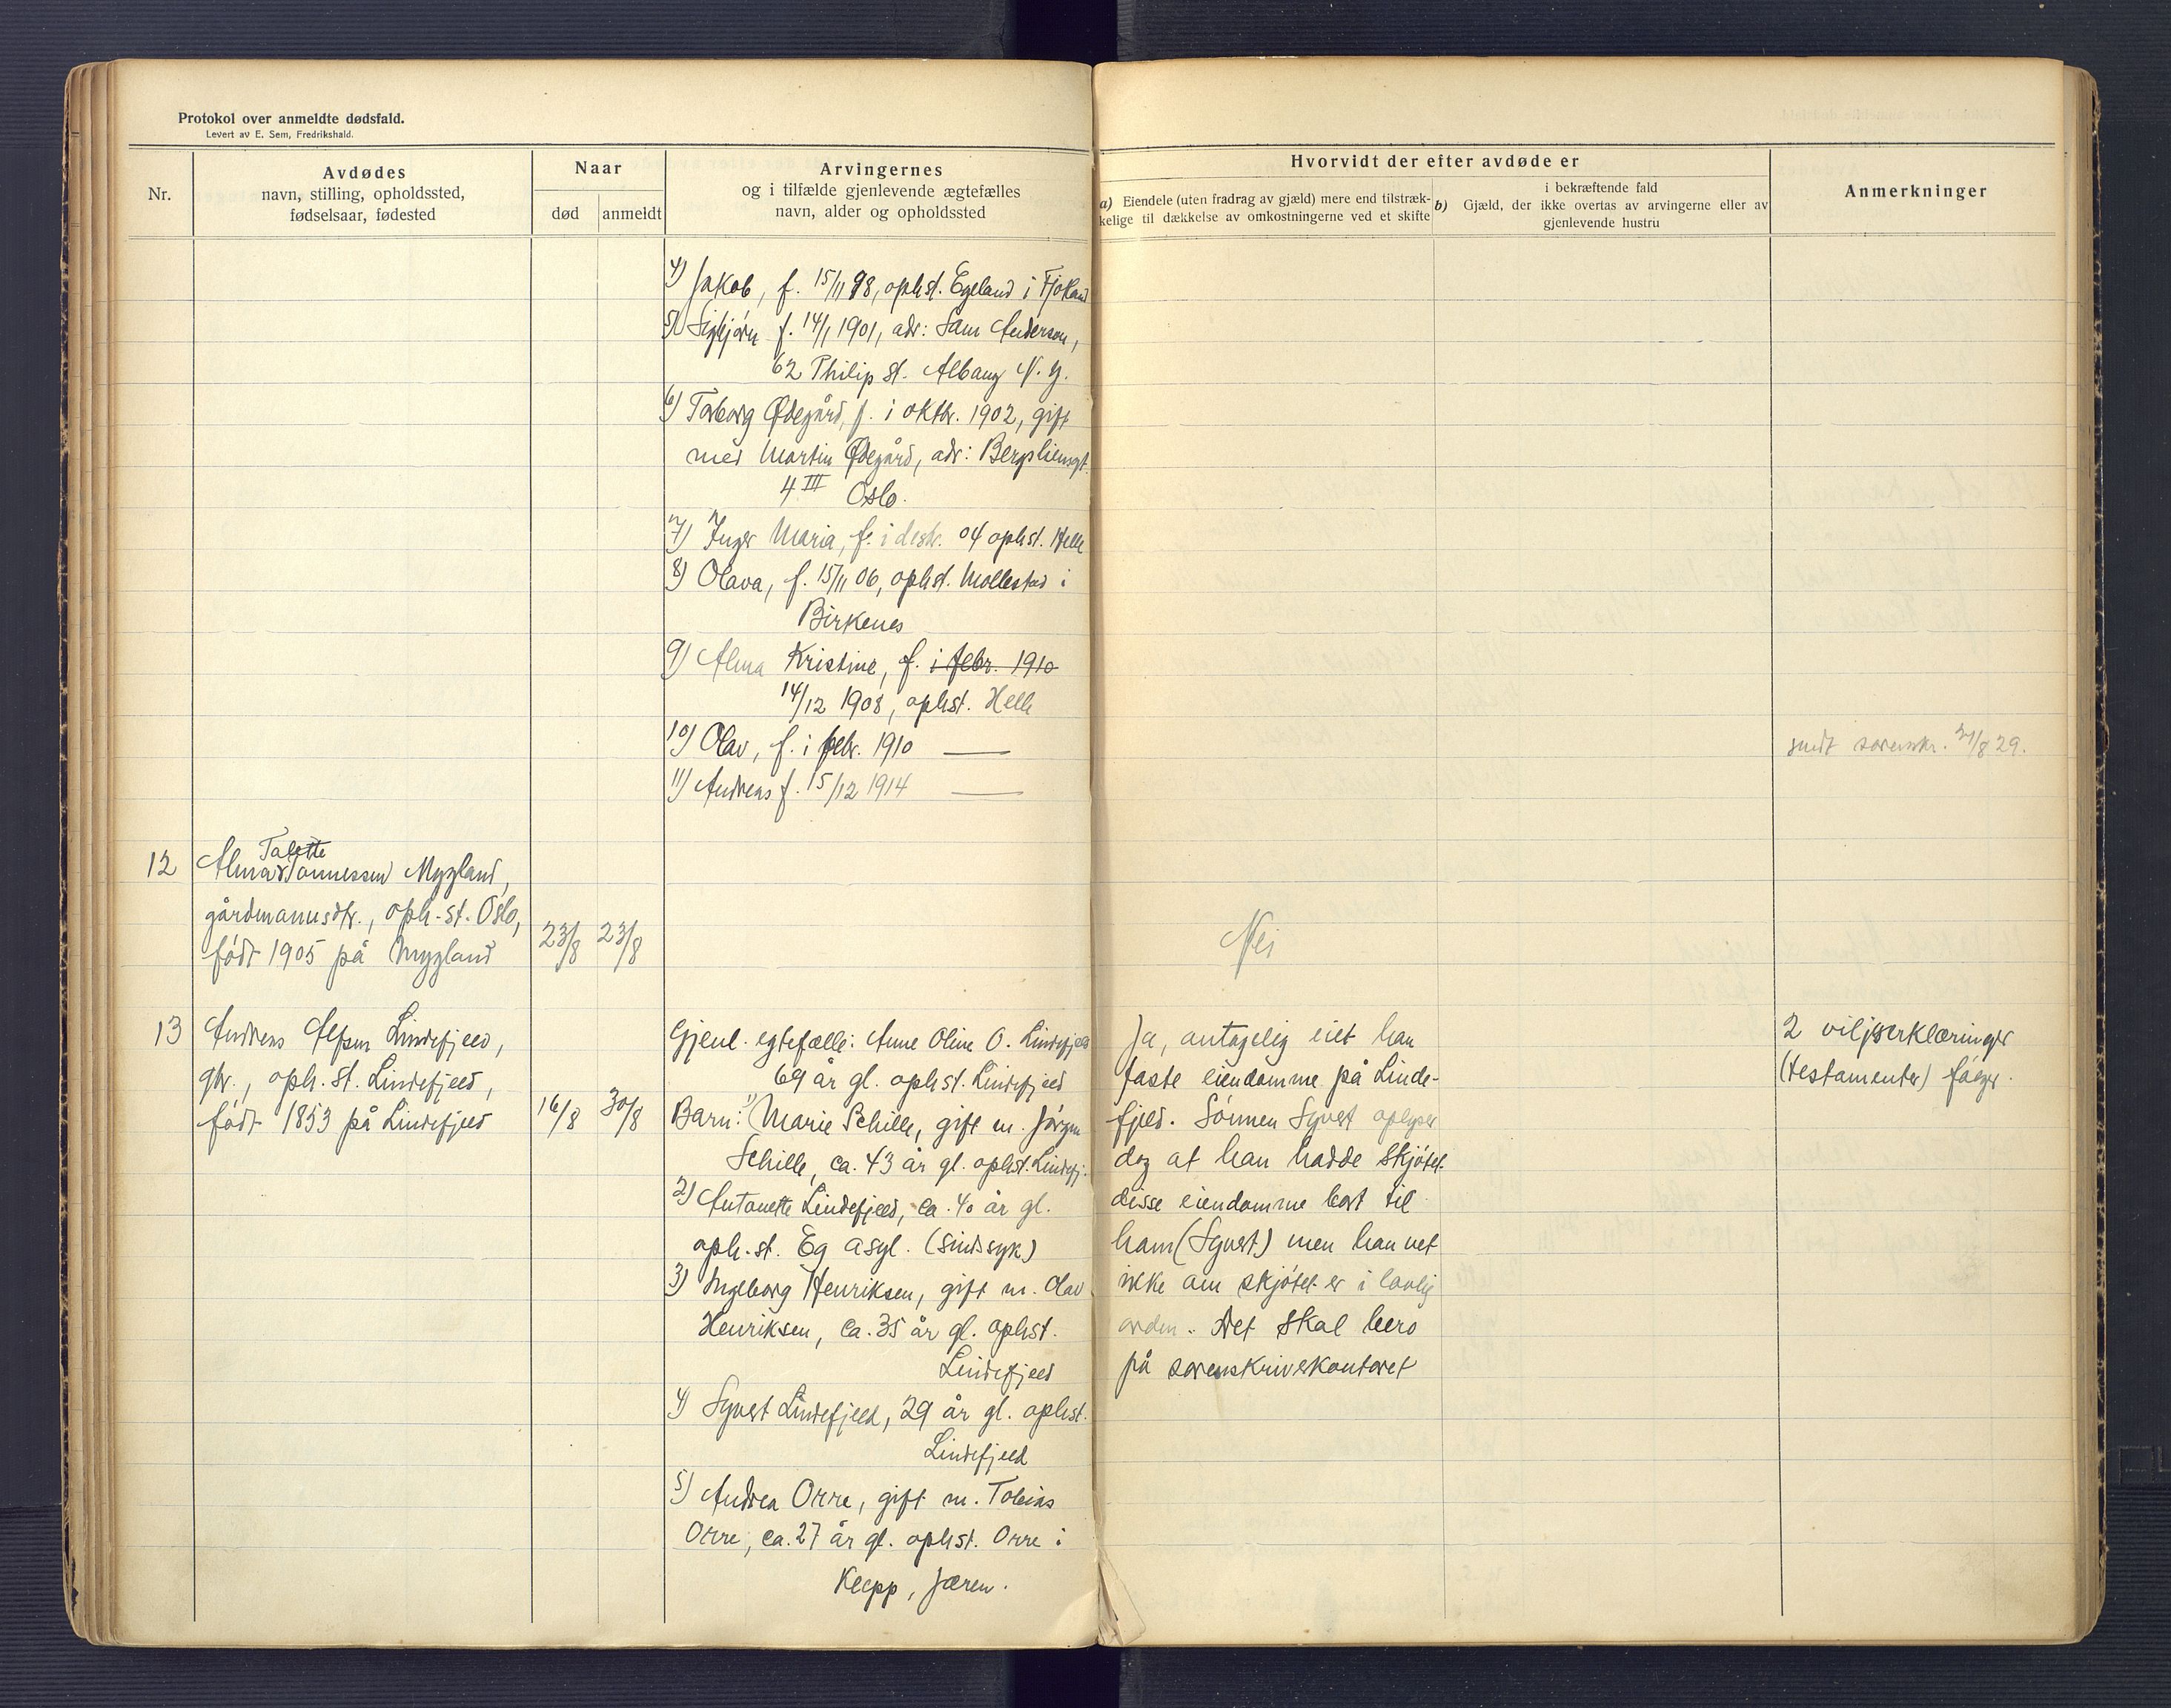 Protokol over anmeldte dødsfald.
Levert av E. Sem, Fredrikshald.
Nr.
Avdødes
navn, stilling, opholdssted,
fødselsaar, fødested
Naar
død
anmeldt
Arvingernes
og i tilfælde gjenlevende ægtefælles
navn, alder og opholdssted
Hvorvidt der efter avdøde er
a) Eiendele (uten fradrag av gjæld) mere end tilstræk-
kelige til dækkelse av omkostningerne ved et skifte
i bekræftende fald
b) Gjæld, der ikke overtas av arvingerne eller av
gjenlevende hustru
Anmerkninger
4) Jakob, f. 15/11 98, ophst. Egeland i Fjotland
5) Sigbjørn f. 14/1 1901, adr: Sam Anderson,
62 Philip st. Albany N. y.
6) Torborg Ødegård, f. i oktbr. 1902, gift
med Martin Ødegård, adr: Bergsliensgt.
4 III Oslo.
7) Inger Maria, f. i desbr. 04 ophst. Helle
8) Olava, f. 15/11 06, ophst. Mollestad i
Birkenes
9) Alma Kristine, f. i febr. 1910
14/12 1908, ophst. Helle
10) Olav, f. i febr. 1910 —
11) Andreas f. 15/12 1914 —
sendt sorenskr. 31/8 29.
12
Talette
Alma Tønnessen Mygland,
gårdmannsdtr., oph.st. Oslo,
født 1905 på Mygland
23/8
23/8
Nei
13
Andreas Alfsen Lindefjeld,
gbr., oph. st. Lindefjeld,
født 1853 på Lindefjeld
16/8
30/8
Gjenl. egtefælle: Anne Oline O. Lindefjeld
69 år gl. ophst. Lindefjeld
Barn: 1) Marie Schille, gift m. Jørgen
Schille, ca. 43 år gl. ophst. Lindefj.
2) Antonette Lindefjeld, ca. 40 år gl.
oph.st. Eg asyl. (sindssyk)
3) Ingeborg Henriksen, gift m. Olav
Henriksen, ca. 35 år gl. ophst.
Lindefjeld
4) Syvert Lindefjeld, 29 år gl. ophst.
Lindefjeld
5) Andrea Orre, gift m. Tobias
Orre, ca. 27 år gl. ophst. Orre i
Klepp, Jæren.
Ja, antagelig eiet han
faste eiendomme på Linde-
fjeld. Sønnen Syvert oplyser
dog at han hadde skjøtet
disse eiendomme bort til
ham (Syvert) men han vet
ikke om skjøtet er i lovlig
orden. Det skal bero
på sorenskriverkontoret
2 viljeserklæringer
(testamenter) følger.